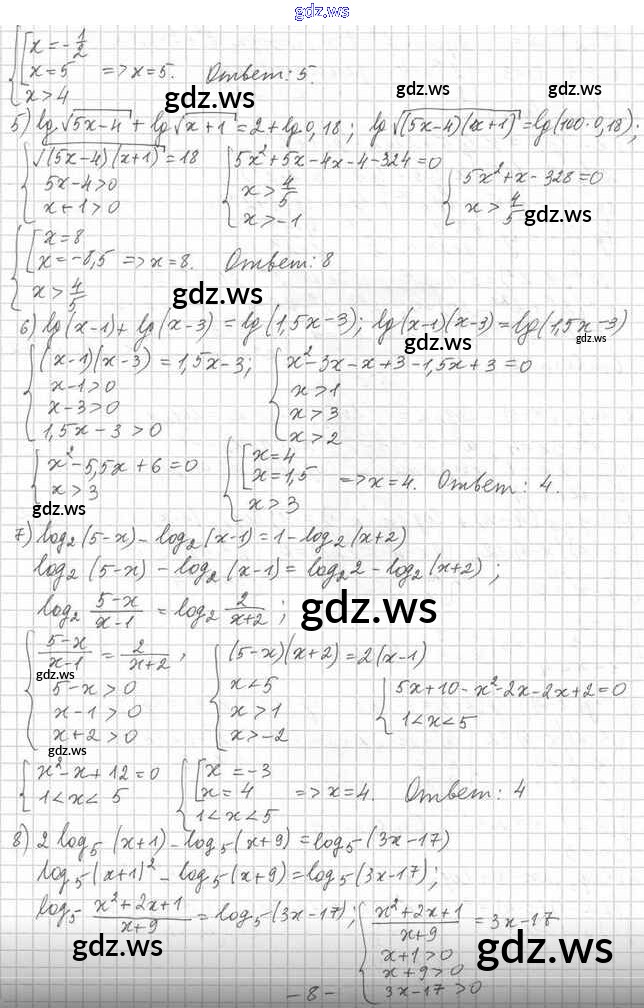 gdz.ws
x = -1/2
x = 5 => x = 5. Ответ: 5.
x > 4
gdz.ws gdz.ws
5) lg √(5x-4) + lg √(x+1) = 2 + lg 0,18; lg √((5x-4)(x+1)) = lg(100·0,18);
√((5x-4)(x+1)) = 18 5x² + 5x - 4x - 4 - 324 = 0 5x² + x - 328 = 0
5x-4>0 x > 4/5 x > 4/5
x+1>0 x > -1
gdz.ws
x = 8
x = -8,5 => x = 8. Ответ: 8
x > 4/5
gdz.ws
6) lg(x-1) + lg(x-3) = lg(1,5x-3); lg(x-1)(x-3) = lg(1,5x-3)
gdz.ws gdz.ws
(x-1)(x-3) = 1,5x-3; x² - 3x - x + 3 - 1,5x + 3 = 0
x-1>0 x>1
x-3>0 x>3
1,5x-3>0 x>2
x² - 5,5x + 6 = 0 x = 4
x>3 x = 1,5 => x = 4. Ответ: 4.
x>3
gdz.ws
7) log₂(5-x) - log₂(x-1) = 1 - log₂(x+2)
log₂(5-x) - log₂(x-1) = log₂2 - log₂(x+2);
log₂ (5-x)/(x-1) = log₂ 2/(x+2);
gdz.ws
(5-x)/(x-1) = 2/(x+2); (5-x)(x+2) = 2(x-1)
gdz.ws
5-x>0 x<5 5x+10-x²-2x-2x+2=0
x-1>0 x>1 1<x<5
x+2>0 x>-2
gdz.ws
x²-x+12=0 x = -3
1<x<5 x = 4 => x = 4. Ответ: 4
1<x<5
gdz.ws
8) 2 log₅(x+1) - log₅(x+9) = log₅(3x-17)
log₅(x+1)² - log₅(x+9) = log₅(3x-17);
log₅ (x²+2x+1)/(x+9) = log₅(3x-17); (x²+2x+1)/(x+9) = 3x-17
x+1>0
x+9>0
3x-17>0
gdz.ws gdz.ws gdz.ws
- 8 -